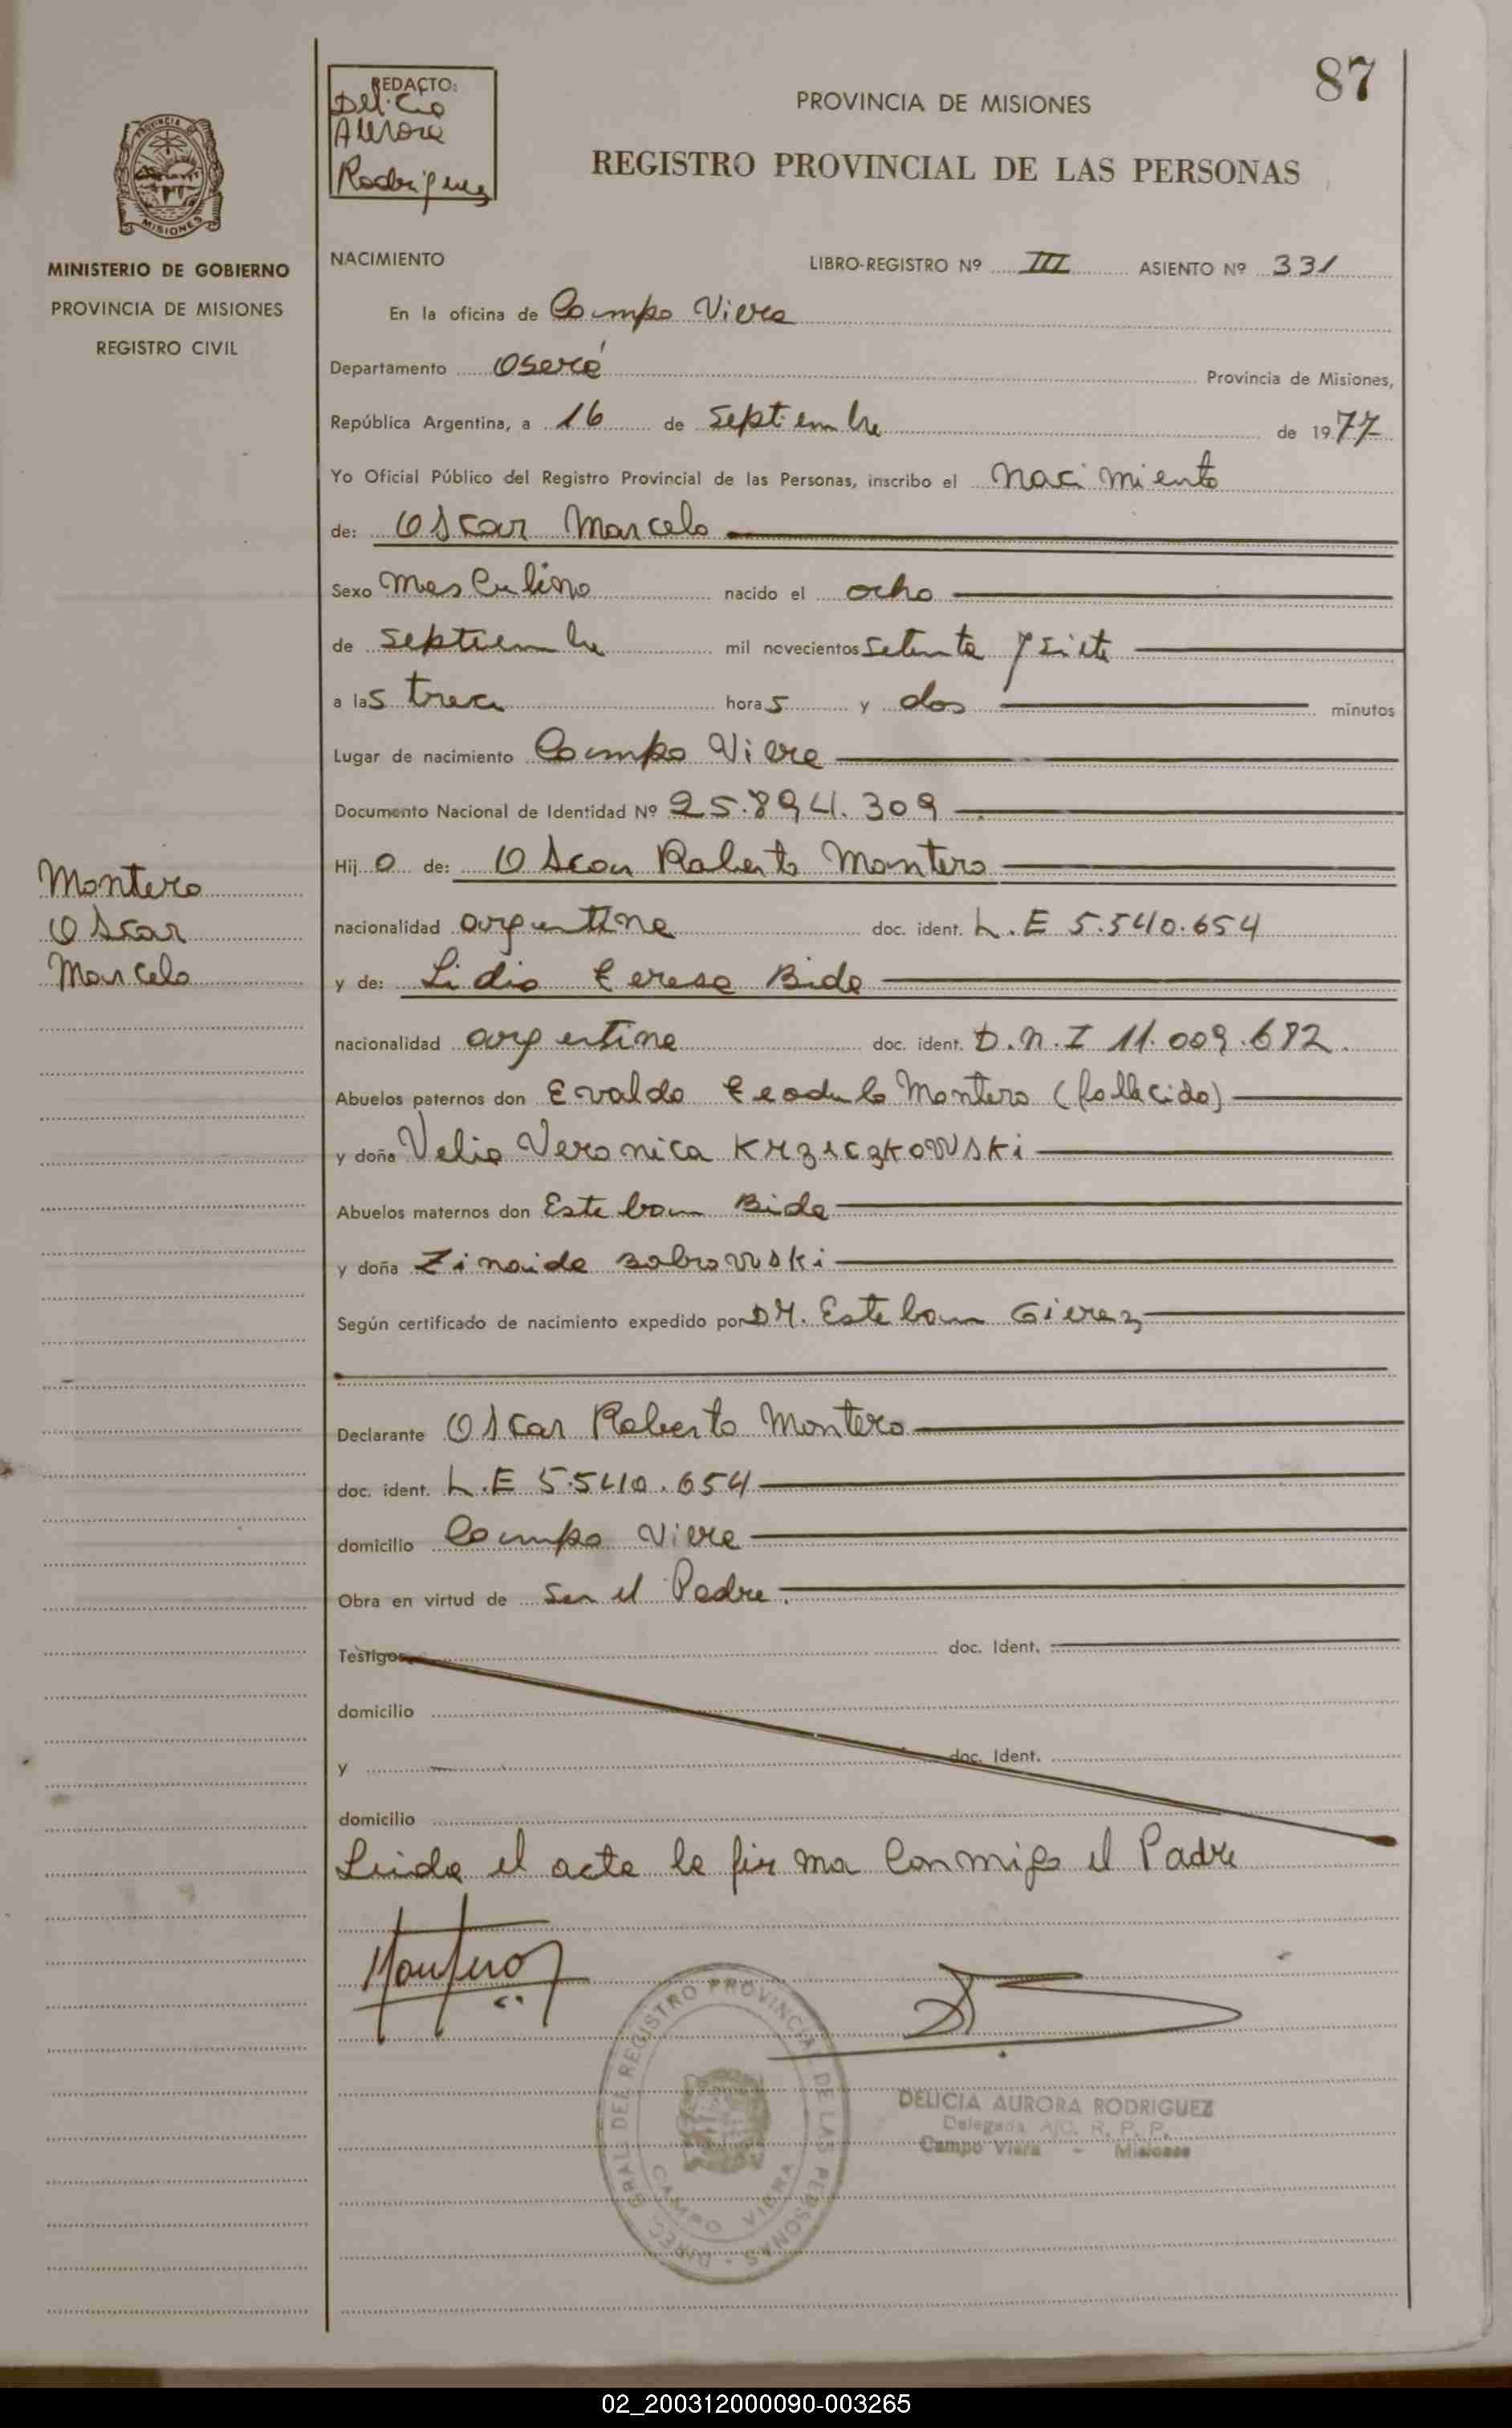 87
REDACTO:
Delicia
Aurora
Rodriguez
PROVINCIA DE MISIONES
REGISTRO PROVINCIAL DE LAS PERSONAS
MISIONES
MINISTERIO DE GOBIERNO
PROVINCIA DE MISIONES
REGISTRO CIVIL
NACIMIENTO LIBRO-REGISTRO Nº III ASIENTO Nº 331
En la oficina de Campo Viera
Departamento Oberá Provincia de Misiones,
República Argentina, a 16 de septiembre de 1977
Yo Oficial Público del Registro Provincial de las Personas, inscribo el nacimiento
de: Oscar Marcelo
Sexo masculino nacido el ocho
de septiembre mil novecientos setenta y siete
a las trece horas y dos minutos
Lugar de nacimiento Campo Viera
Documento Nacional de Identidad Nº 25.894.309
Hijo de: Oscar Roberto Montero
Montero
Oscar
Marcelo
nacionalidad argentina doc. ident. L.E 5.540.654
y de: Lidia Teresa Bida
nacionalidad argentina doc. ident. D.N.I 11.009.682.
Abuelos paternos don Evaldo Teodulo Montero (fallecido)
y doña Velia Veronica
Abuelos maternos don Esteban Bida
y doña Zinaida Bobrowski
Según certificado de nacimiento expedido por DR. Esteban Gierez
Declarante Oscar Roberto Montero
doc. ident. L.E 5.540.654
domicilio Campo Viera
Obra en virtud de ser el Padre.
Testigos doc. Ident.
domicilio
y doc. Ident.
domicilio
Leida el acta la firma conmigo el Padre
Montero
DIREC. GRAL. DEL REGISTRO PROVINCIAL DE LAS PERSONAS
CAMPO VIERA
DELICIA AURORA RODRIGUEZ
Delegada A/C. R. P. P.
Campo Viera - Misiones
02_200312000090-003265